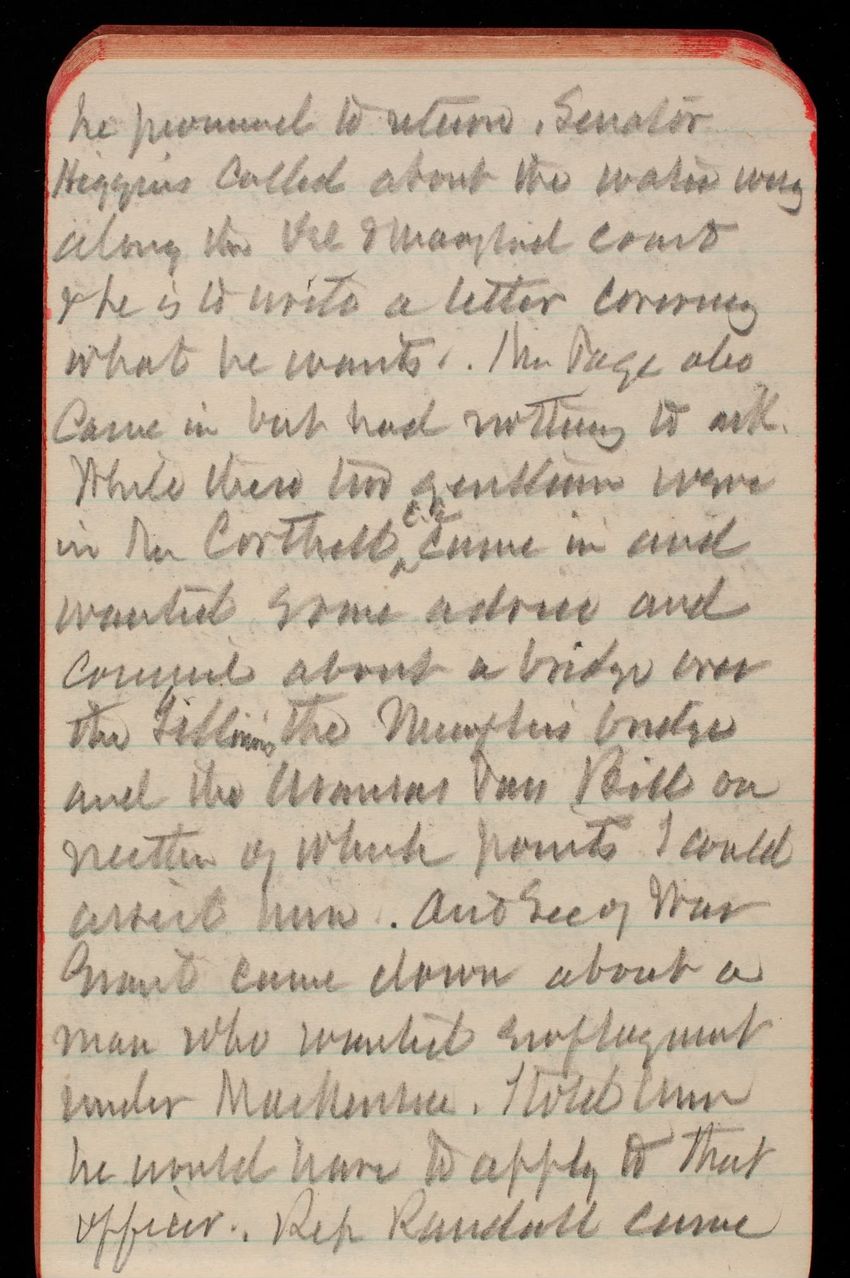 he promised to return. Senator
Higgins called about the water way
along the Del & Maryland coast
& he is to write a letter covering
what he wants. Mr Page also
came in but had nothing to ask.
While these two gentlemen were
in Mr Corthell, E.L. came in and
wanted some advice and
council about a bridge over
the Illinois, the Memphis bridge
and the Arkansas Pass Bill on
neither of which points I could
assist him. Asst Sec of War
Grant came down about a
man who wanted employment
under Mackenzie. I told him
he would have to apply to that
officer. Rep Randall came